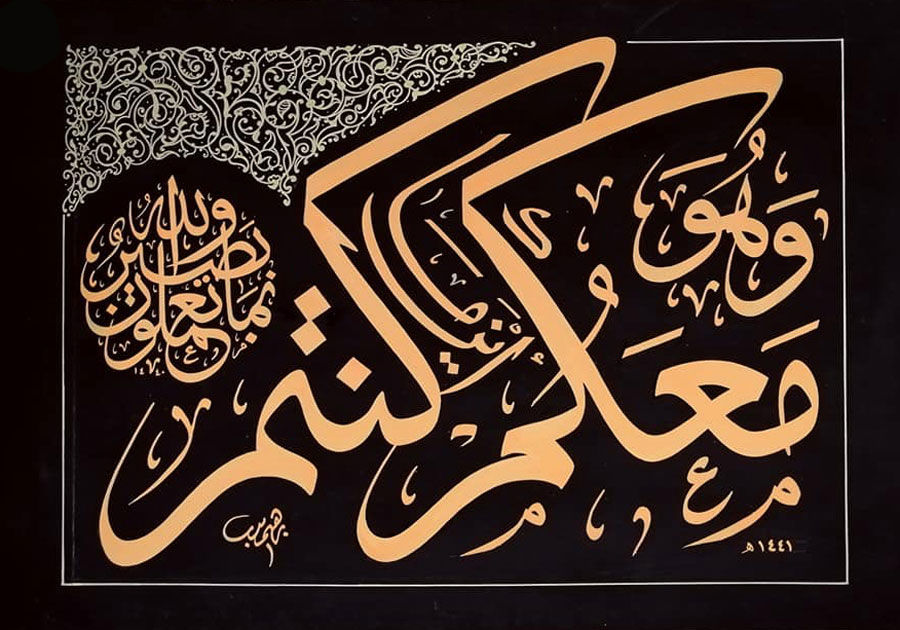 وَهُوَ
مَعَكُم أينما كنتم
والله بما تعملون بصيرٌ
١٤٤١هـ